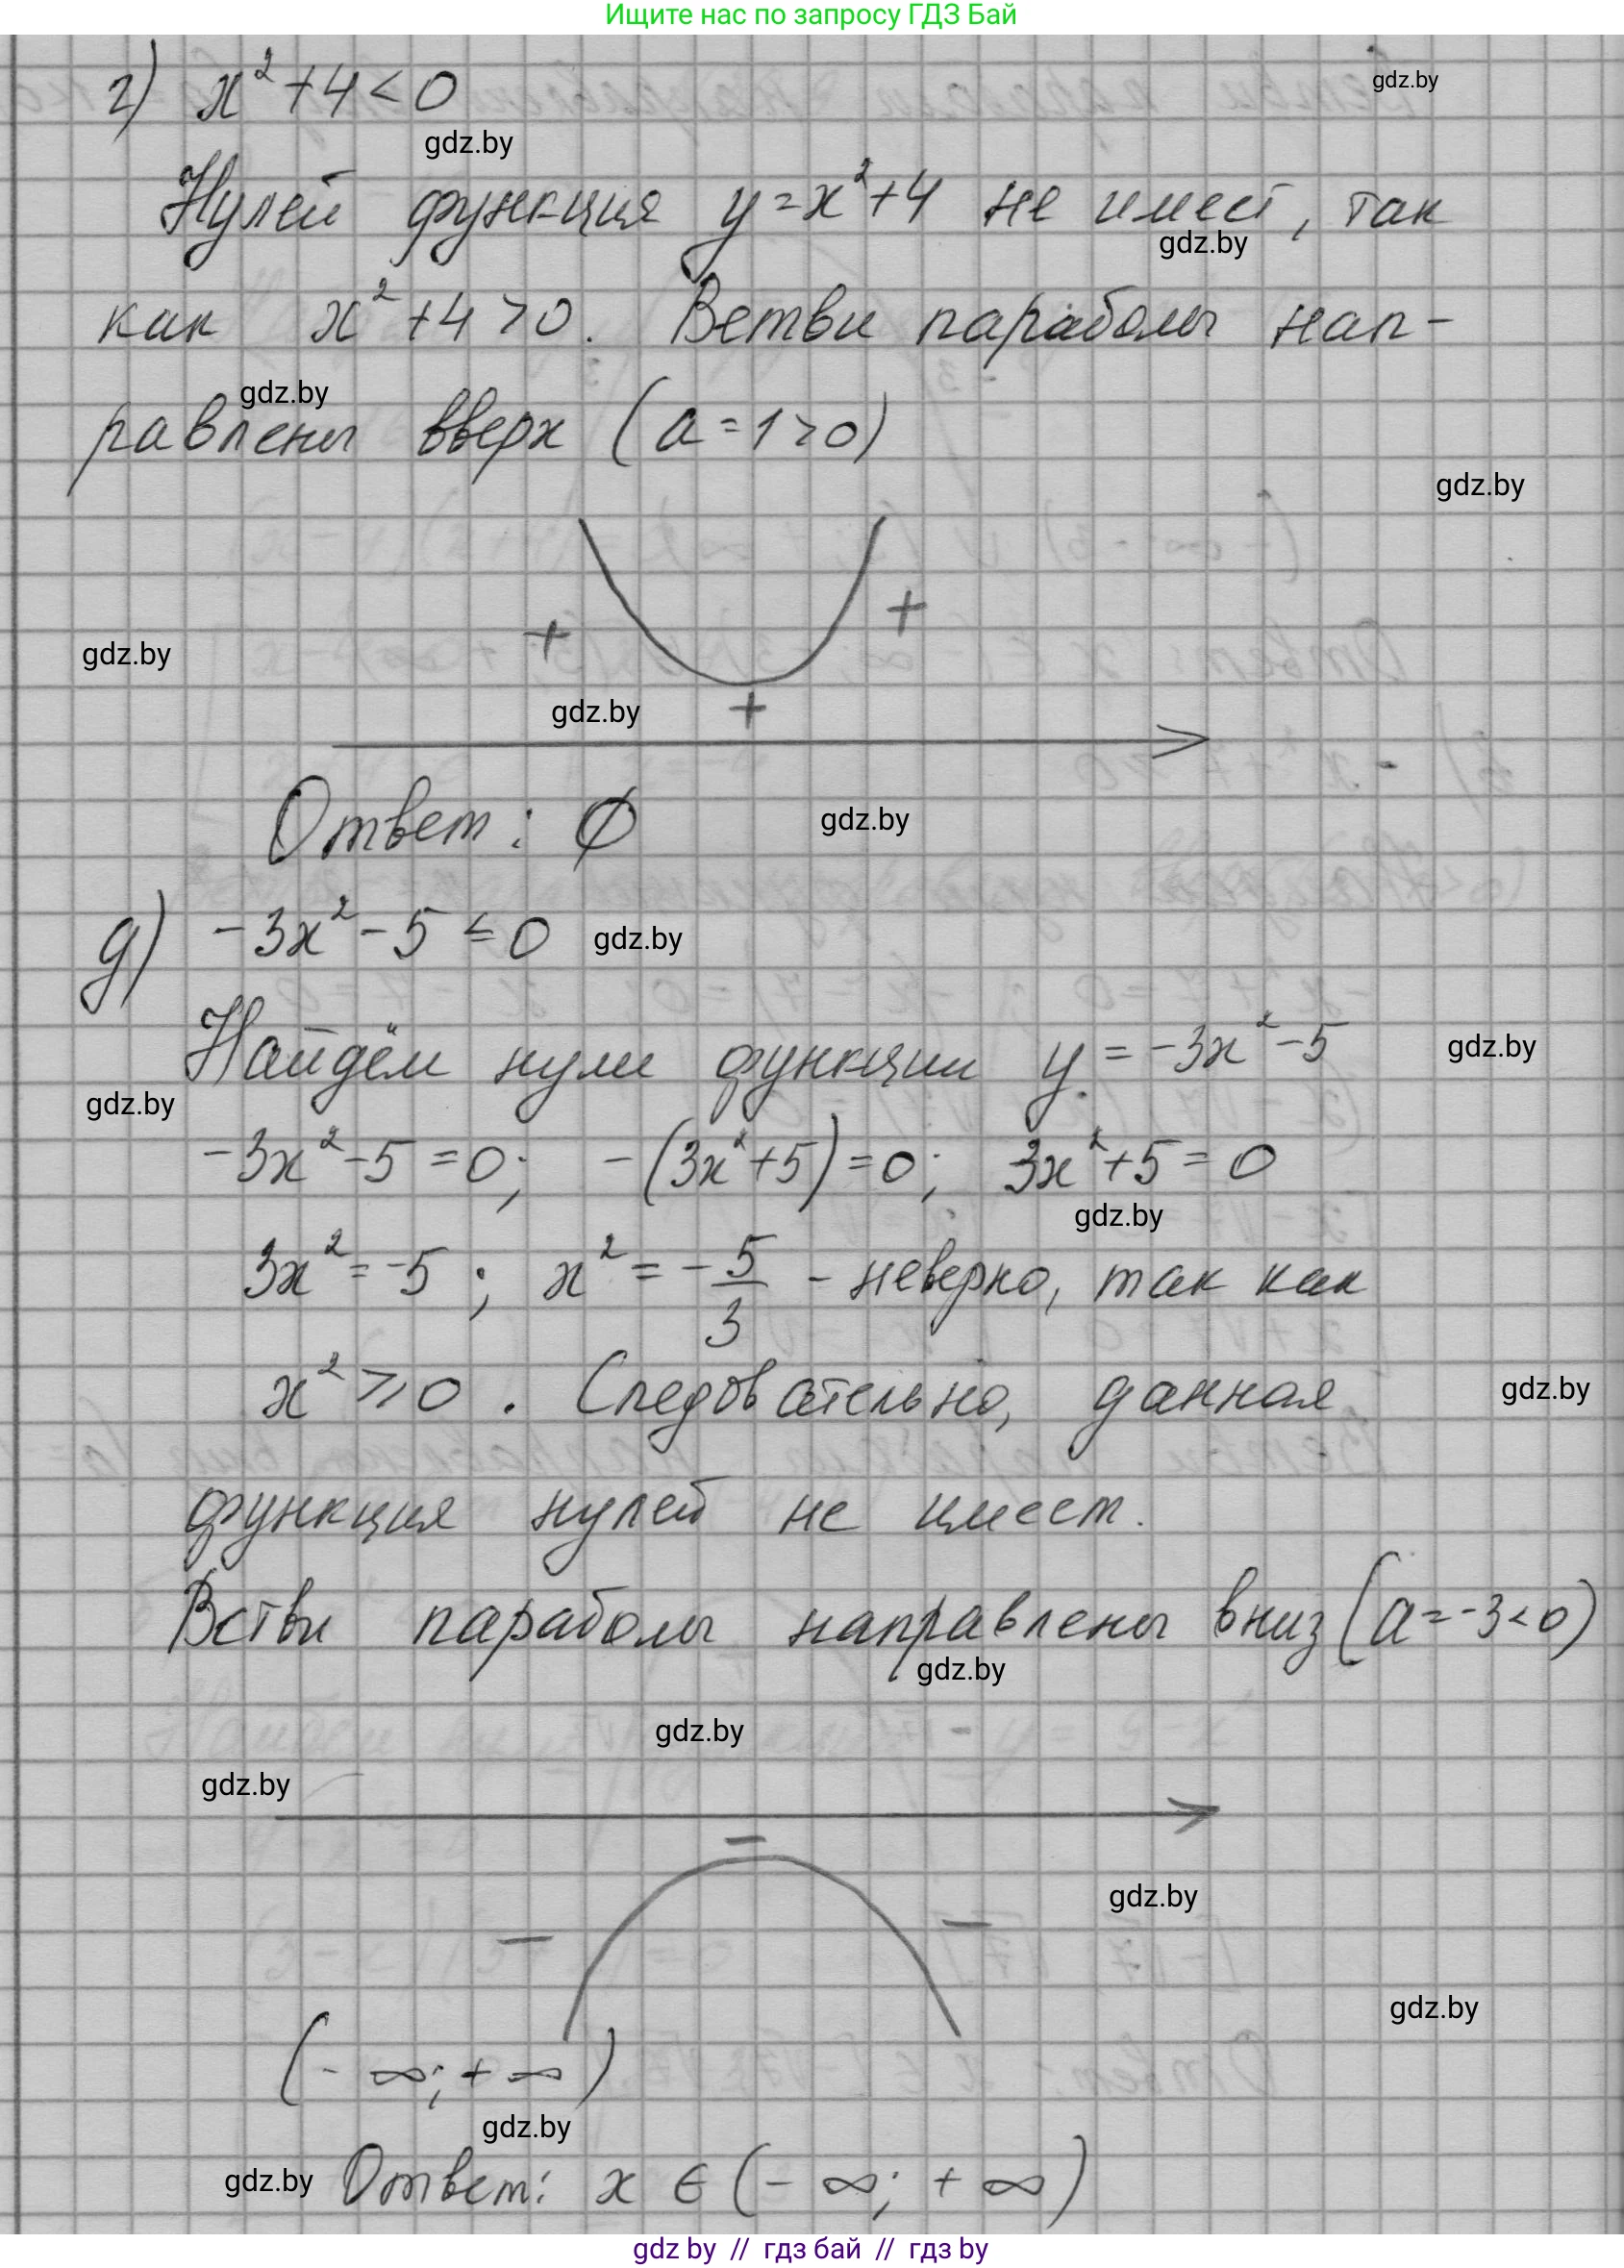 Ищите нас по запросу ГДЗ Бай
г) x²+4<0
gdz.by
gdz.by
Нулей функция y=x²+4 не имеет, так
gdz.by
как x²+4>0. Ветви параболы нап-
gdz.by
равлены вверх (a=1>0)
gdz.by
+ +
gdz.by
gdz.by +
Ответ: ∅ gdz.by
д) -3x²-5≤0 gdz.by
Найдём нули функции y=-3x²-5 gdz.by
gdz.by
-3x²-5=0; -(3x²+5)=0; 3x²+5=0
gdz.by
3x²=-5; x²=-5/3 - неверно, так как
x²⩾0. Следовательно, данная gdz.by
функция нулей не имеет.
Ветви параболы направлены вниз (a=-3<0)
gdz.by
gdz.by
gdz.by
-
gdz.by
- -
gdz.by
(-∞;+∞)
gdz.by
gdz.by Ответ: x∈(-∞;+∞)
gdz by // гдз бай // гдз by